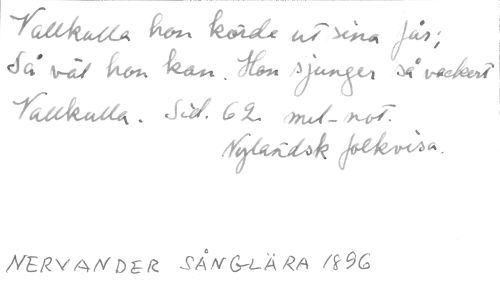 Vallkulla hon körde ut sina får;
Så väl hon kan. Hon sjunger så vackert
Vallkulla. Sid. 62 mel-not.
Nyländsk folkvisa.
NERVANDER SÅNGLÄRA 1896